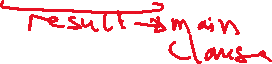 result → main
clause